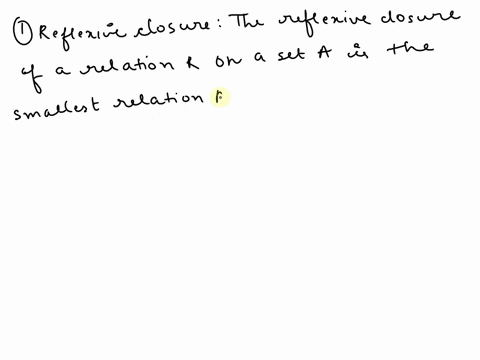 ① Reflexive closure: The reflexive closure
of a relation R on a set A is the
smallest relation